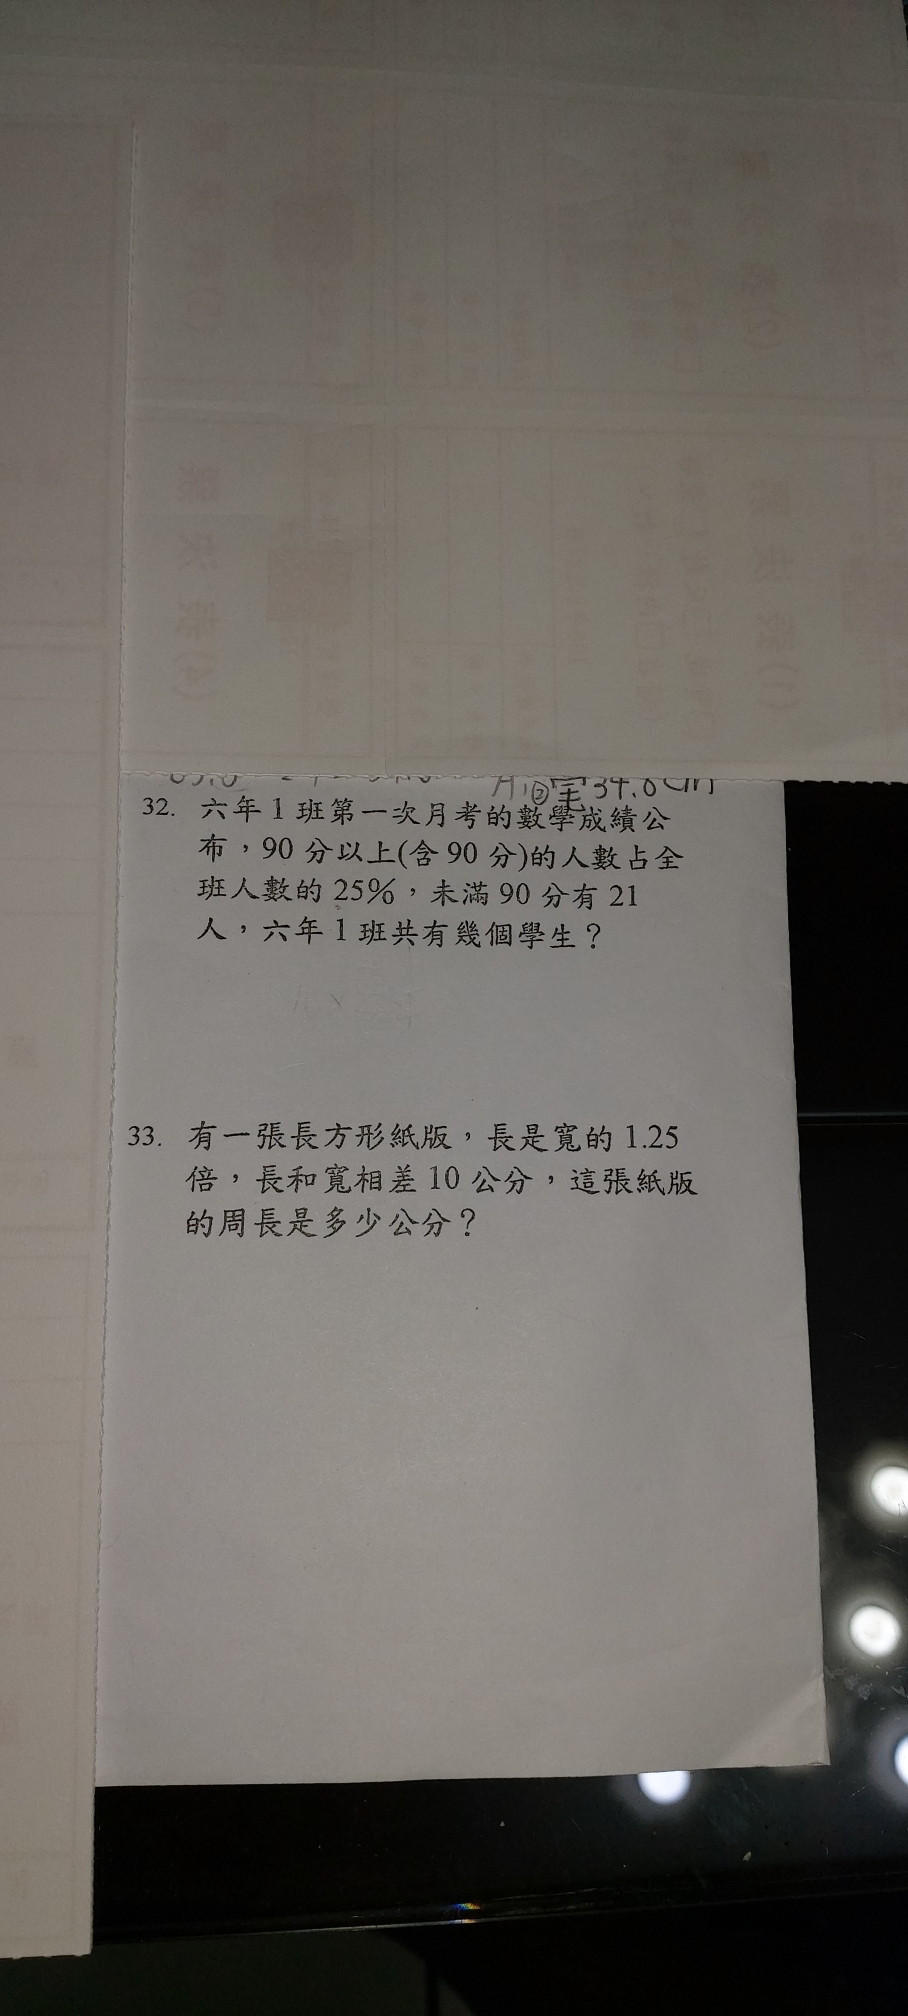 34.8cm
32. 六年1班第一次月考的數學成績公
布，90分以上(含90分)的人數占全
班人數的25%，未滿90分有21
人，六年1班共有幾個學生？
33. 有一張長方形紙版，長是寬的1.25
倍，長和寬相差10公分，這張紙版
的周長是多少公分？